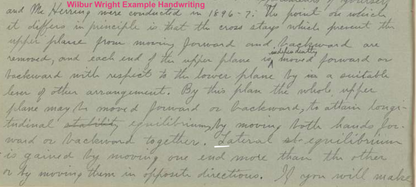 Wilbur Wright Example Handwriting
and Mr. Herring were conducted in 1896-7. The point on which
it differs in principle is that the cross stays which prevent the
upper plane from moving forward and backward are
removed, and each end of the upper plane is independently moved forward or
backward with respect to the lower plane by a suitable
lever or other arrangement. By this plan the whole upper
plane may be moved forward or backward, to attain longi-
tudinal stability equilibrium, by moving both hands for-
ward or backward together. Lateral st equilibrium
is gained by moving one end more than the other
or by moving them in opposite directions. If you will make